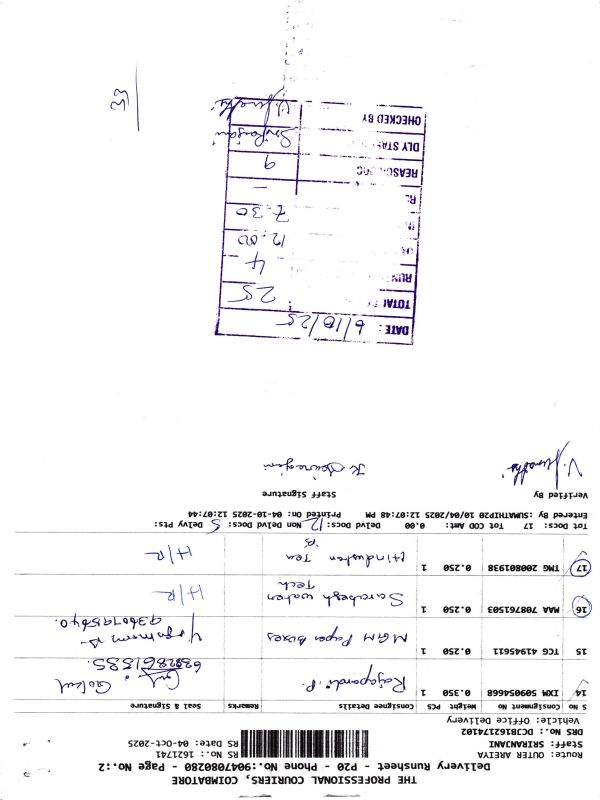 THE PROFESSIONAL COURIERS, COIMBATORE
Delivery Runsheet - P20 - Phone No.:9047080280 - Page No.:2
Route: OUTER AREIYA RS No.: 1621741
Staff: SRIRANJANI RS Date: 04-Oct-2025
DRS No.: DCB162174102
Vehicle: Office Delivery
S No Consignment No Weight PCS Consignee Details Remarks Seal & Signature
14 IXM 509054668 0.350 1 Rajapandi. P. Gokul
15 TCG 41945611 0.250 1 MGM Paper Boxes 9360795640.
16 MAA 708761503 0.250 1 Sarabesh water Tech H/R
17 TMG 200801938 0.250 1 Hindustan Tea H/R
Tot Docs: 17 Tot COD Amt: 0.00 Delvd Docs: 12 Non Delvd Docs: 5 Delvy Pts:
Entered By :SUMATHIP20 10/04/2025 12:07:48 PM Printed On: 04-10-2025 12:07:44
Verified By Staff Signature
DATE: 6/10/25
TOTAL 25
RUN 4
12.00
7.30
RL -
REASON DOC 9
DLY STA Sriranjani
CHECKED BY
33